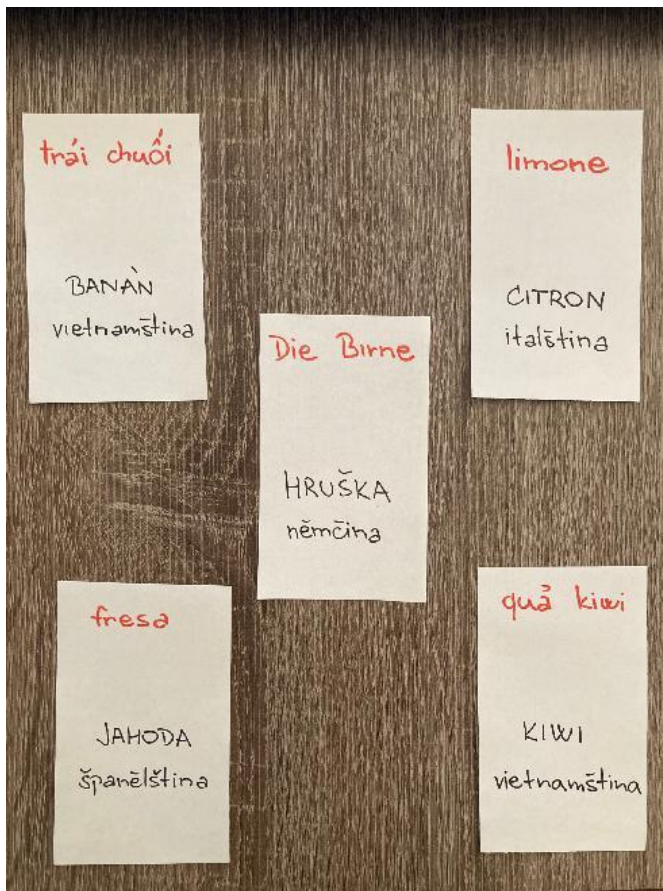 trái chuối
BANÀN
vietnamština
limone
CITRON
italština
Die Birne
HRUŠKA
němčina
fresa
JAHODA
španělština
quả kiwi
KIWI
vietnamština